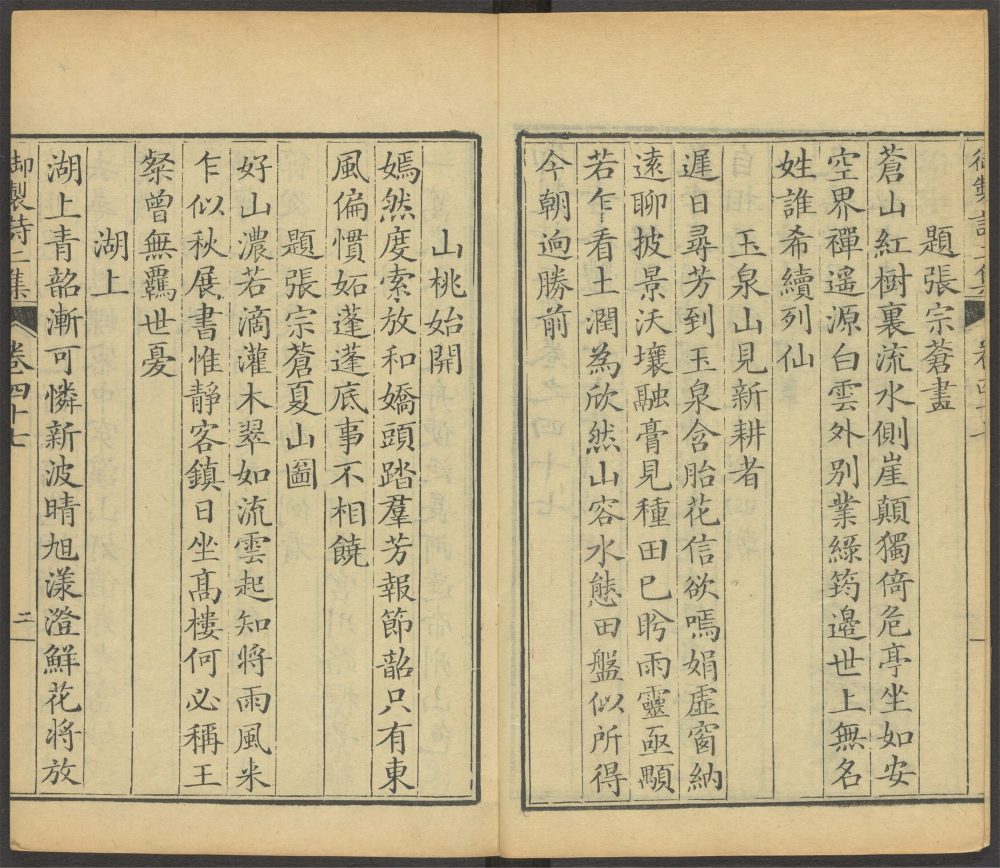 題張宗蒼畫
蒼山紅樹裏流水側崖顛獨倚危亭坐如安
空界禪遥源白雲外別業綠筠邉世上無名
姓誰希續列仙
玉泉山見新耕者
遲日尋芳到玉泉含胎花信欲嫣娟虛窗納
逺聊披景沃壤融膏見種田已盻雨靈亟顒
若乍看土潤為欣然山容水態田盤似所得
今朝逈勝前
山桃始開
嫣然度索放和嬌頭踏羣芳報節韶只有東
風偏慣妬蓬蓬底事不相饒
題張宗蒼夏山圖
好山濃若滴灌木翠如流雲起知將雨風來
乍似秋展書惟靜客鎮日坐髙樓何必稱王
粲曾無羈世憂
湖上
湖上青韶漸可憐新波晴旭漾澄鮮花將放
御製詩二集
卷四十七
二